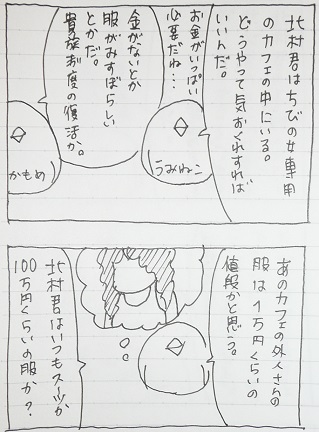 北村君はちびの女専用
のカフェの中にいる。
どうやって気おくれすれば
いいんだ。
お金がいっぱい
必要だね…
うみねこ
金がないとか
服がみすぼらしい
とかだ。
貴族制度の復活か。
かもめ
あのカフェの外人さんの
服は1万円くらいの
値段かと思う。
北村君はいつもスーツか
100万円くらいの服か?